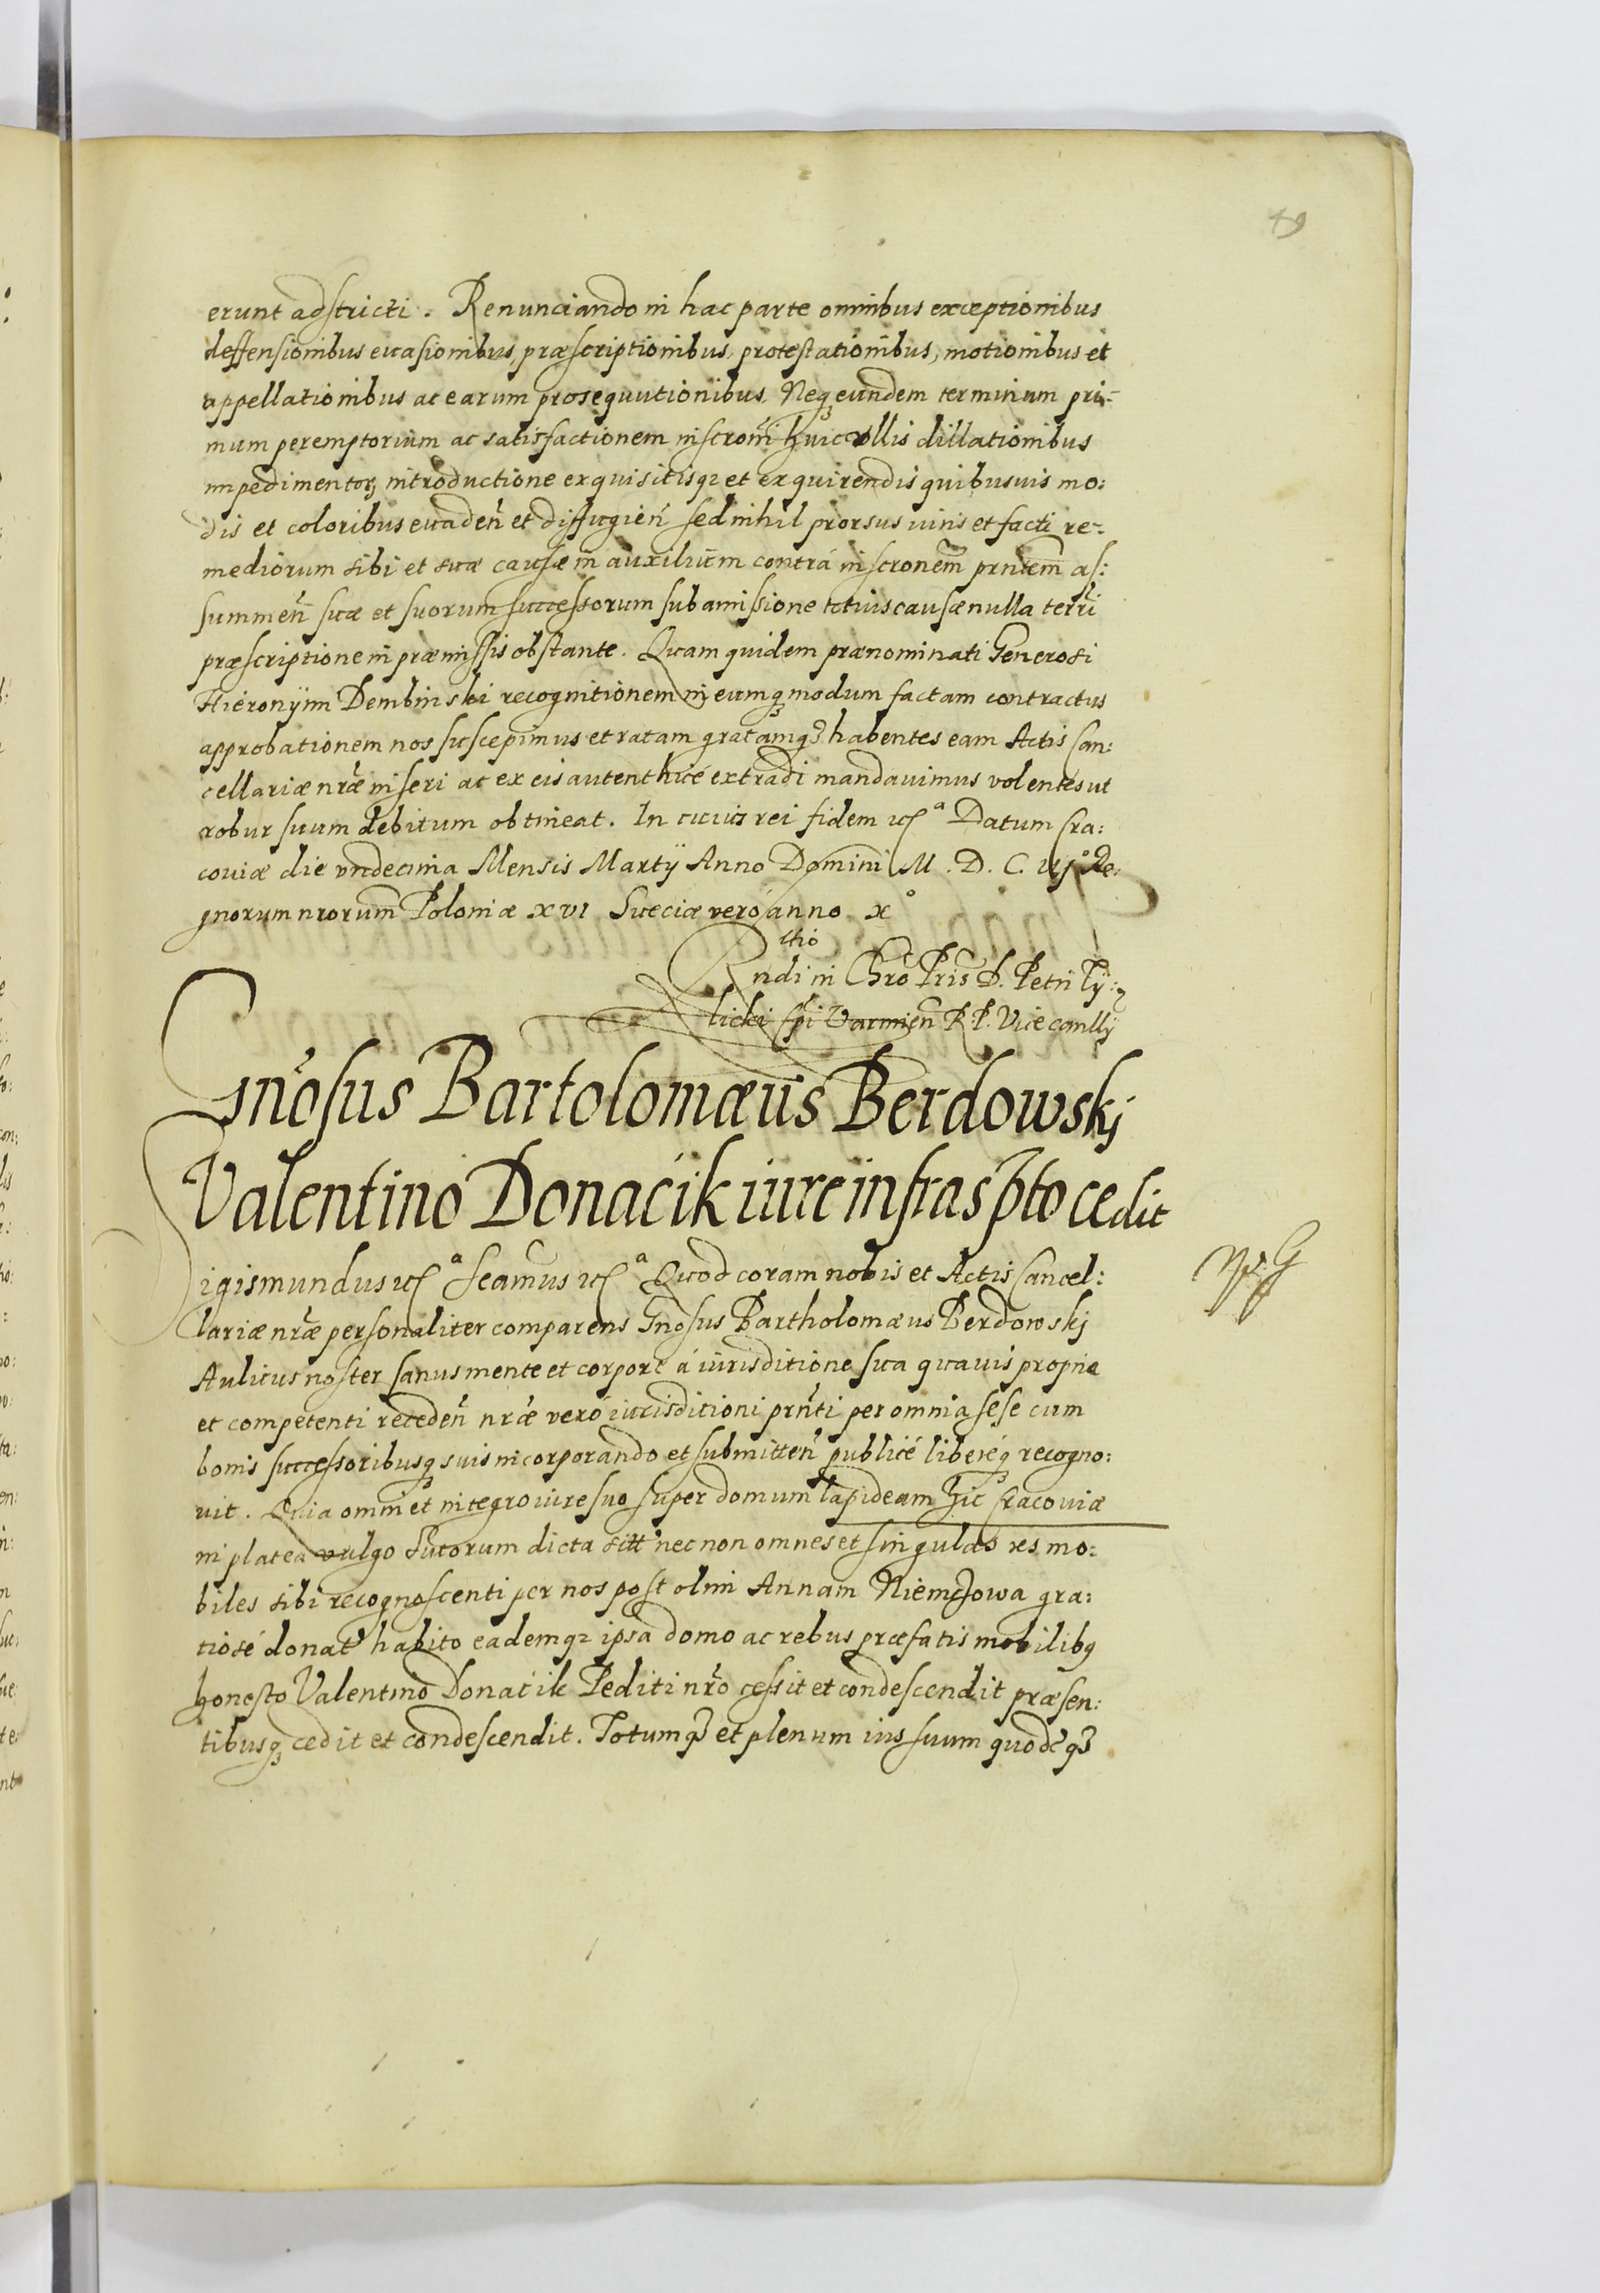 49
erunt adstricti. Renunciando in hac parte omnibus exceptionibus
deffensionibus euasionibus, præscriptionibus, protestationibus, motionibus et
appellationibus ac earum prosequutionibus. Neq3 eundem terminum pri-
mum peremptorium ac satisfactionem inscrōni huic vllis dillationibus
impedimentor introductione exquisitisq3 et exquirendis quibusuis mo:
dis et coloribus euaden̄ et diffugien̄ sed nihil prorsus iuris et facti re-
mediorum sibi et suæ causæ in auxilium contrá inscronem̄ prntem̄ as:
summen̄ suæ et suorum successorum sub amissione totius causæ nulla terri
præscriptione in præmissis obstante. Quam quidem prænominati Generosi
Hieronymi Dembinski recognitionem in eumq3 modum factam contractus
approbationem nos suscepimus et ratam gratamq3 habentes eam Actis Can:
cellariæ nr̄æ inseri ac ex eis autenthicé extradi mandauimus volentes ut
robur suum debitum obtineat. In cuius rei fidem etc̃ᵃ Datum Cra:
couiæ die vndecima Mensis Martij Anno Domini M. D. C. iijº Re:
gnorum nrorum̄ Poloniæ XVI Sueciæ veró anno xº
Rltio
Rndi in Chrō Pris̄ D. Petri Ty:
licki Epi Varmien̄ R P. Vicecanllij
Gnōsus Bartolomæus Berdowskj
Valentino Donacik iure infrasp̄to cedit
Sigismundus etc̃ᵃ Seamus etc̃ᵃ Quod coram nobis et Actis Cancel:
lariæ nr̄æ personaliter comparens Gnōsus Bartholomæus Berdowskj
Aulicus noster sanus mente et corpore á iurisditione sua quauis propria
et competenti receden̄ nr̄æ veró iurisditioni prn̄ti per omnia sese cum
bonis successoribusq3 suis incorporando et submitten̄ publicé liberéq3 recogno:
uit. Quia omni et integro iure suo super domum lapideam hic Cracouiæ
in platea vulgo Sutorum dicta sitt̄ nec non omnes et singulas res mo:
biles sibi recognoscenti per nos post olim Annam Niemczowa gra:
tiosé donat̄ habito eademq3 ipsa domo ac rebus præfatis mobilibq3
honesto Valentino Donacik Pediti nr̄o cessit et condescendit præsen:
tibusq3 cedit et condescendit. Totumq3 et plenum ius suum quodcq3